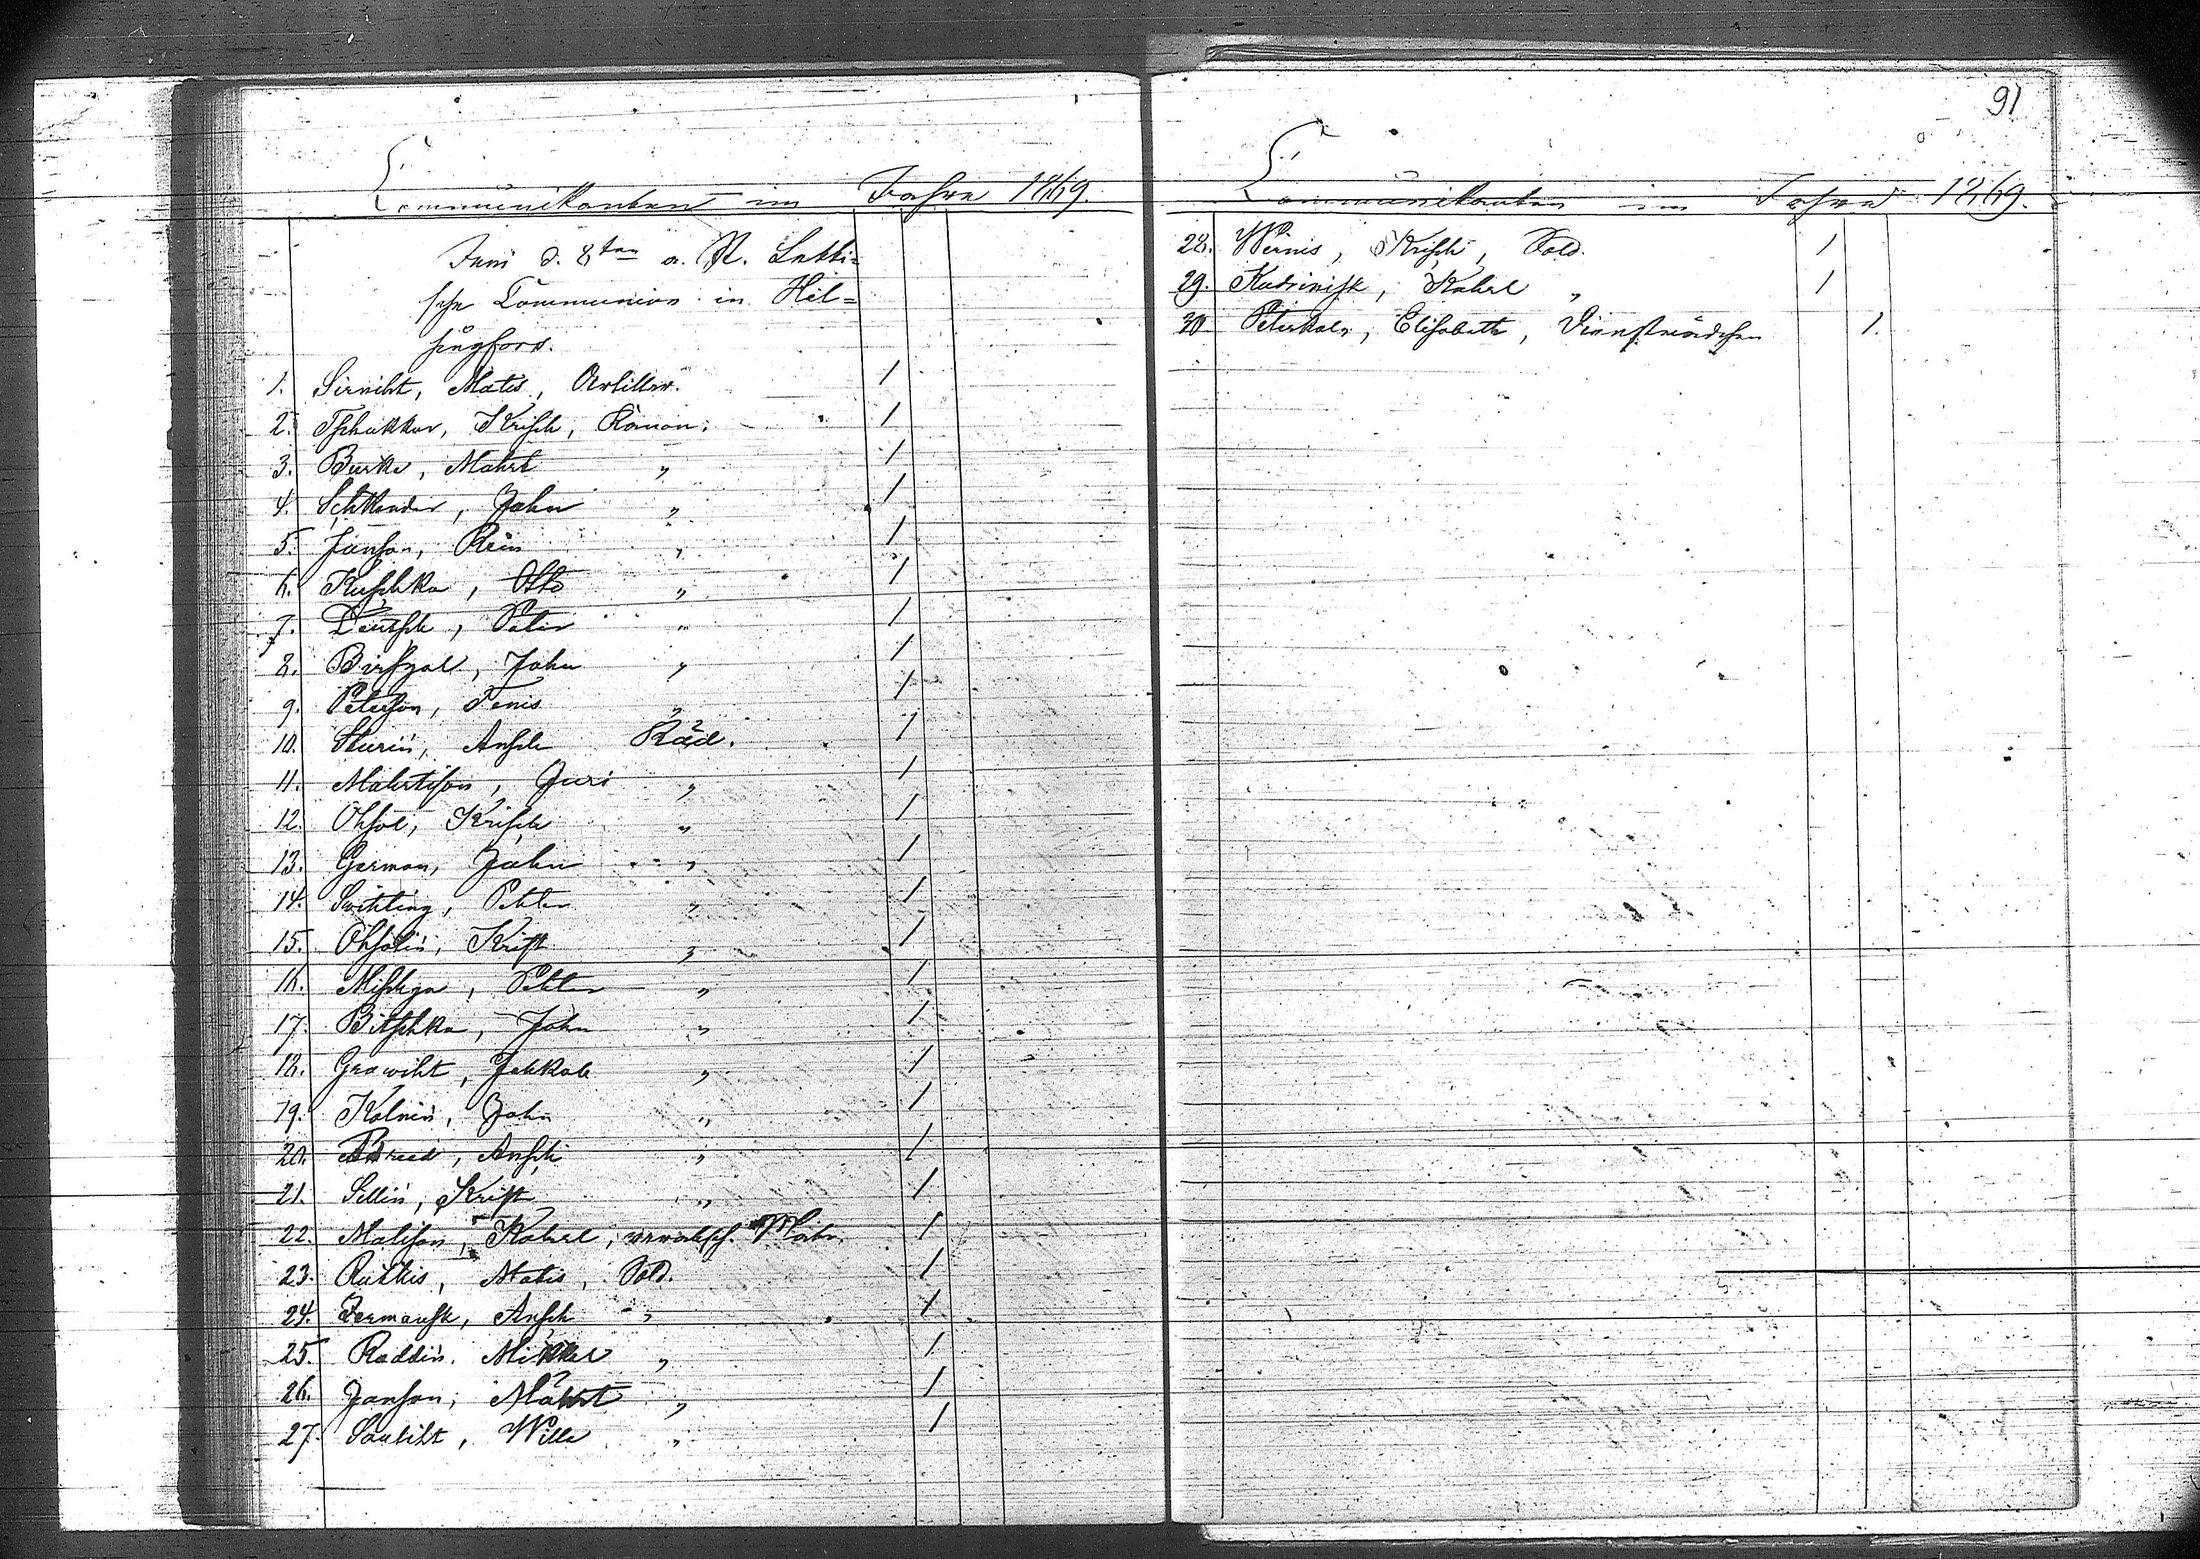 91
Communikanten im Jahre 1869.
Juni d. 8ten a. St. Letti=
sche Communion in Hel=
singfors.
1. Sirniht, Matis, Artiller. 1
2. Tschukkur, Krisch, Kanon. 1
3. Burke, Mahrt " 1
4. Schkender, Jahn " 1
5. Janson, Rein " 1
6. Kuschka, Otto " 1
7. Deutsch, Peter " 1
8. Birsgal, Jahn " 1
9. Peterson, Tenis " 1
10. Sturin, Ansch 1
11. Mahrtison, Juri " 1
12. Ohsol, Krisch " 1
13. German, Jahn " 1
14. Swihting, Pehter " 1
15. Ohsolin, Krist " 1
16. Pehter " 1
17. Bitschka, Jahn " 1
18. Grawiht, Jehkab " 1
19. Kalnin, Jahn " 1
20. Ansch " 1
21. Sellin, Krist " 1
22. Matison, Kahrl, 1
23. Rutkis, Matis, Sold. 1
24. Ansch " 1
25. Raddin, Mikkel " 1
26. Janson, Mahrt " 1
27. Sauliht, Wille " 1
Communikanten im Jahre 1869.
28. Wernis, Krisch, Sold. 1
29. Kudrinisk, Kahrl " 1
30. Peterkaln, Elisabeth, Dienstmädchen 1.